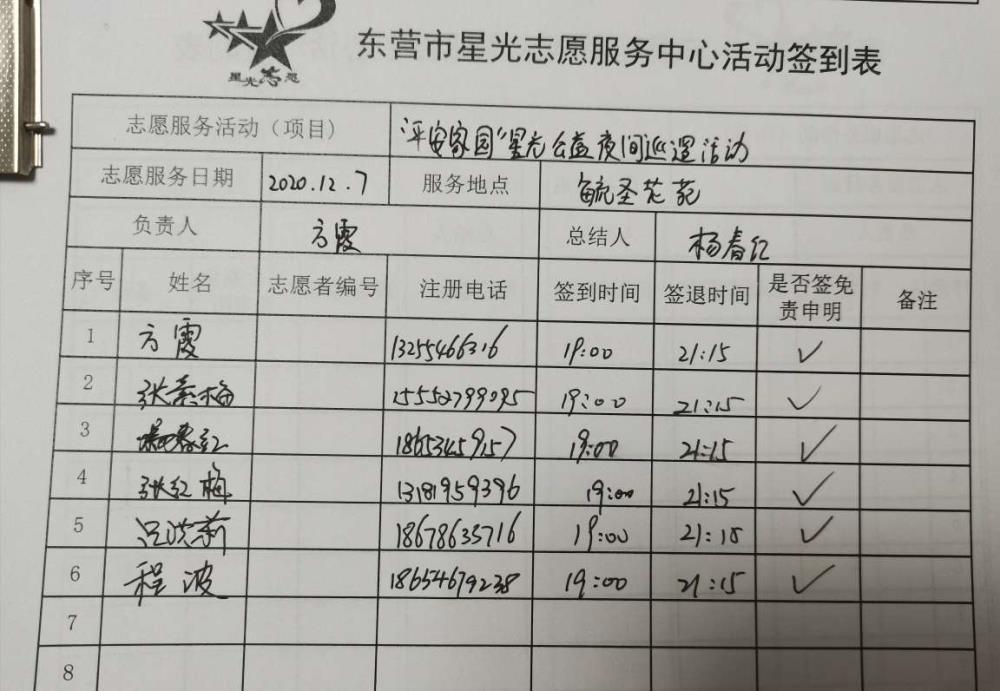 星光志愿
东营市星光志愿服务中心活动签到表
志愿服务活动（项目） “平安家园”星光公益夜间巡逻活动
志愿服务日期 2020.12.7 服务地点 毓圣花苑
负责人 方霞 总结人 杨春红
序号 姓名 志愿者编号 注册电话 签到时间 签退时间 是否签免责申明 备注
1 方霞 13255466316 19:00 21:15 ✓
2 张素梅 15552799095 19:00 21:15 ✓
3 18653459157 19:00 21:15 ✓
4 张红梅 13181959396 19:00 21:15 ✓
5 吕洪莉 18678635716 19:00 21:15 ✓
6 程波 18654679238 19:00 21:15 ✓
7
8